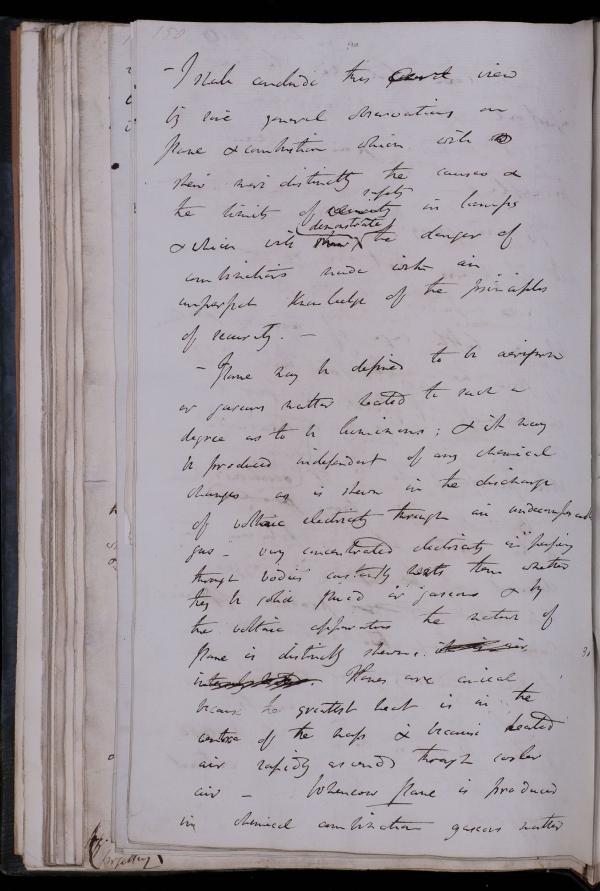 150
- I shall conclude this view
by some general observations on
flame & combustion which will
shew more distinctly the causes &
safety
the limits of security in lamps
demonstrate
& which will shew the danger of
combinations made with an
imperfect knowledge of the principles
of security. —
- Flame may be defined to be aeriform
or gaseous matter heated to such a
degree as to be luminous; & it may
be produced independent of any chemical
changes as is shewn in the discharge
of voltaic electricity through an undecomposable
gas - very concentrated electricity in passing
through bodies constantly heats them whether
they be solid fluid or gaseous & by
the voltaic apparatus the nature of
flame is distinctly shewn.
Flames are conical
because the greatest heat is in the
centre of the mass & because heated
air rapidly ascends through cooler
air — Whenever flame is produced
in chemical combination gaseous matter